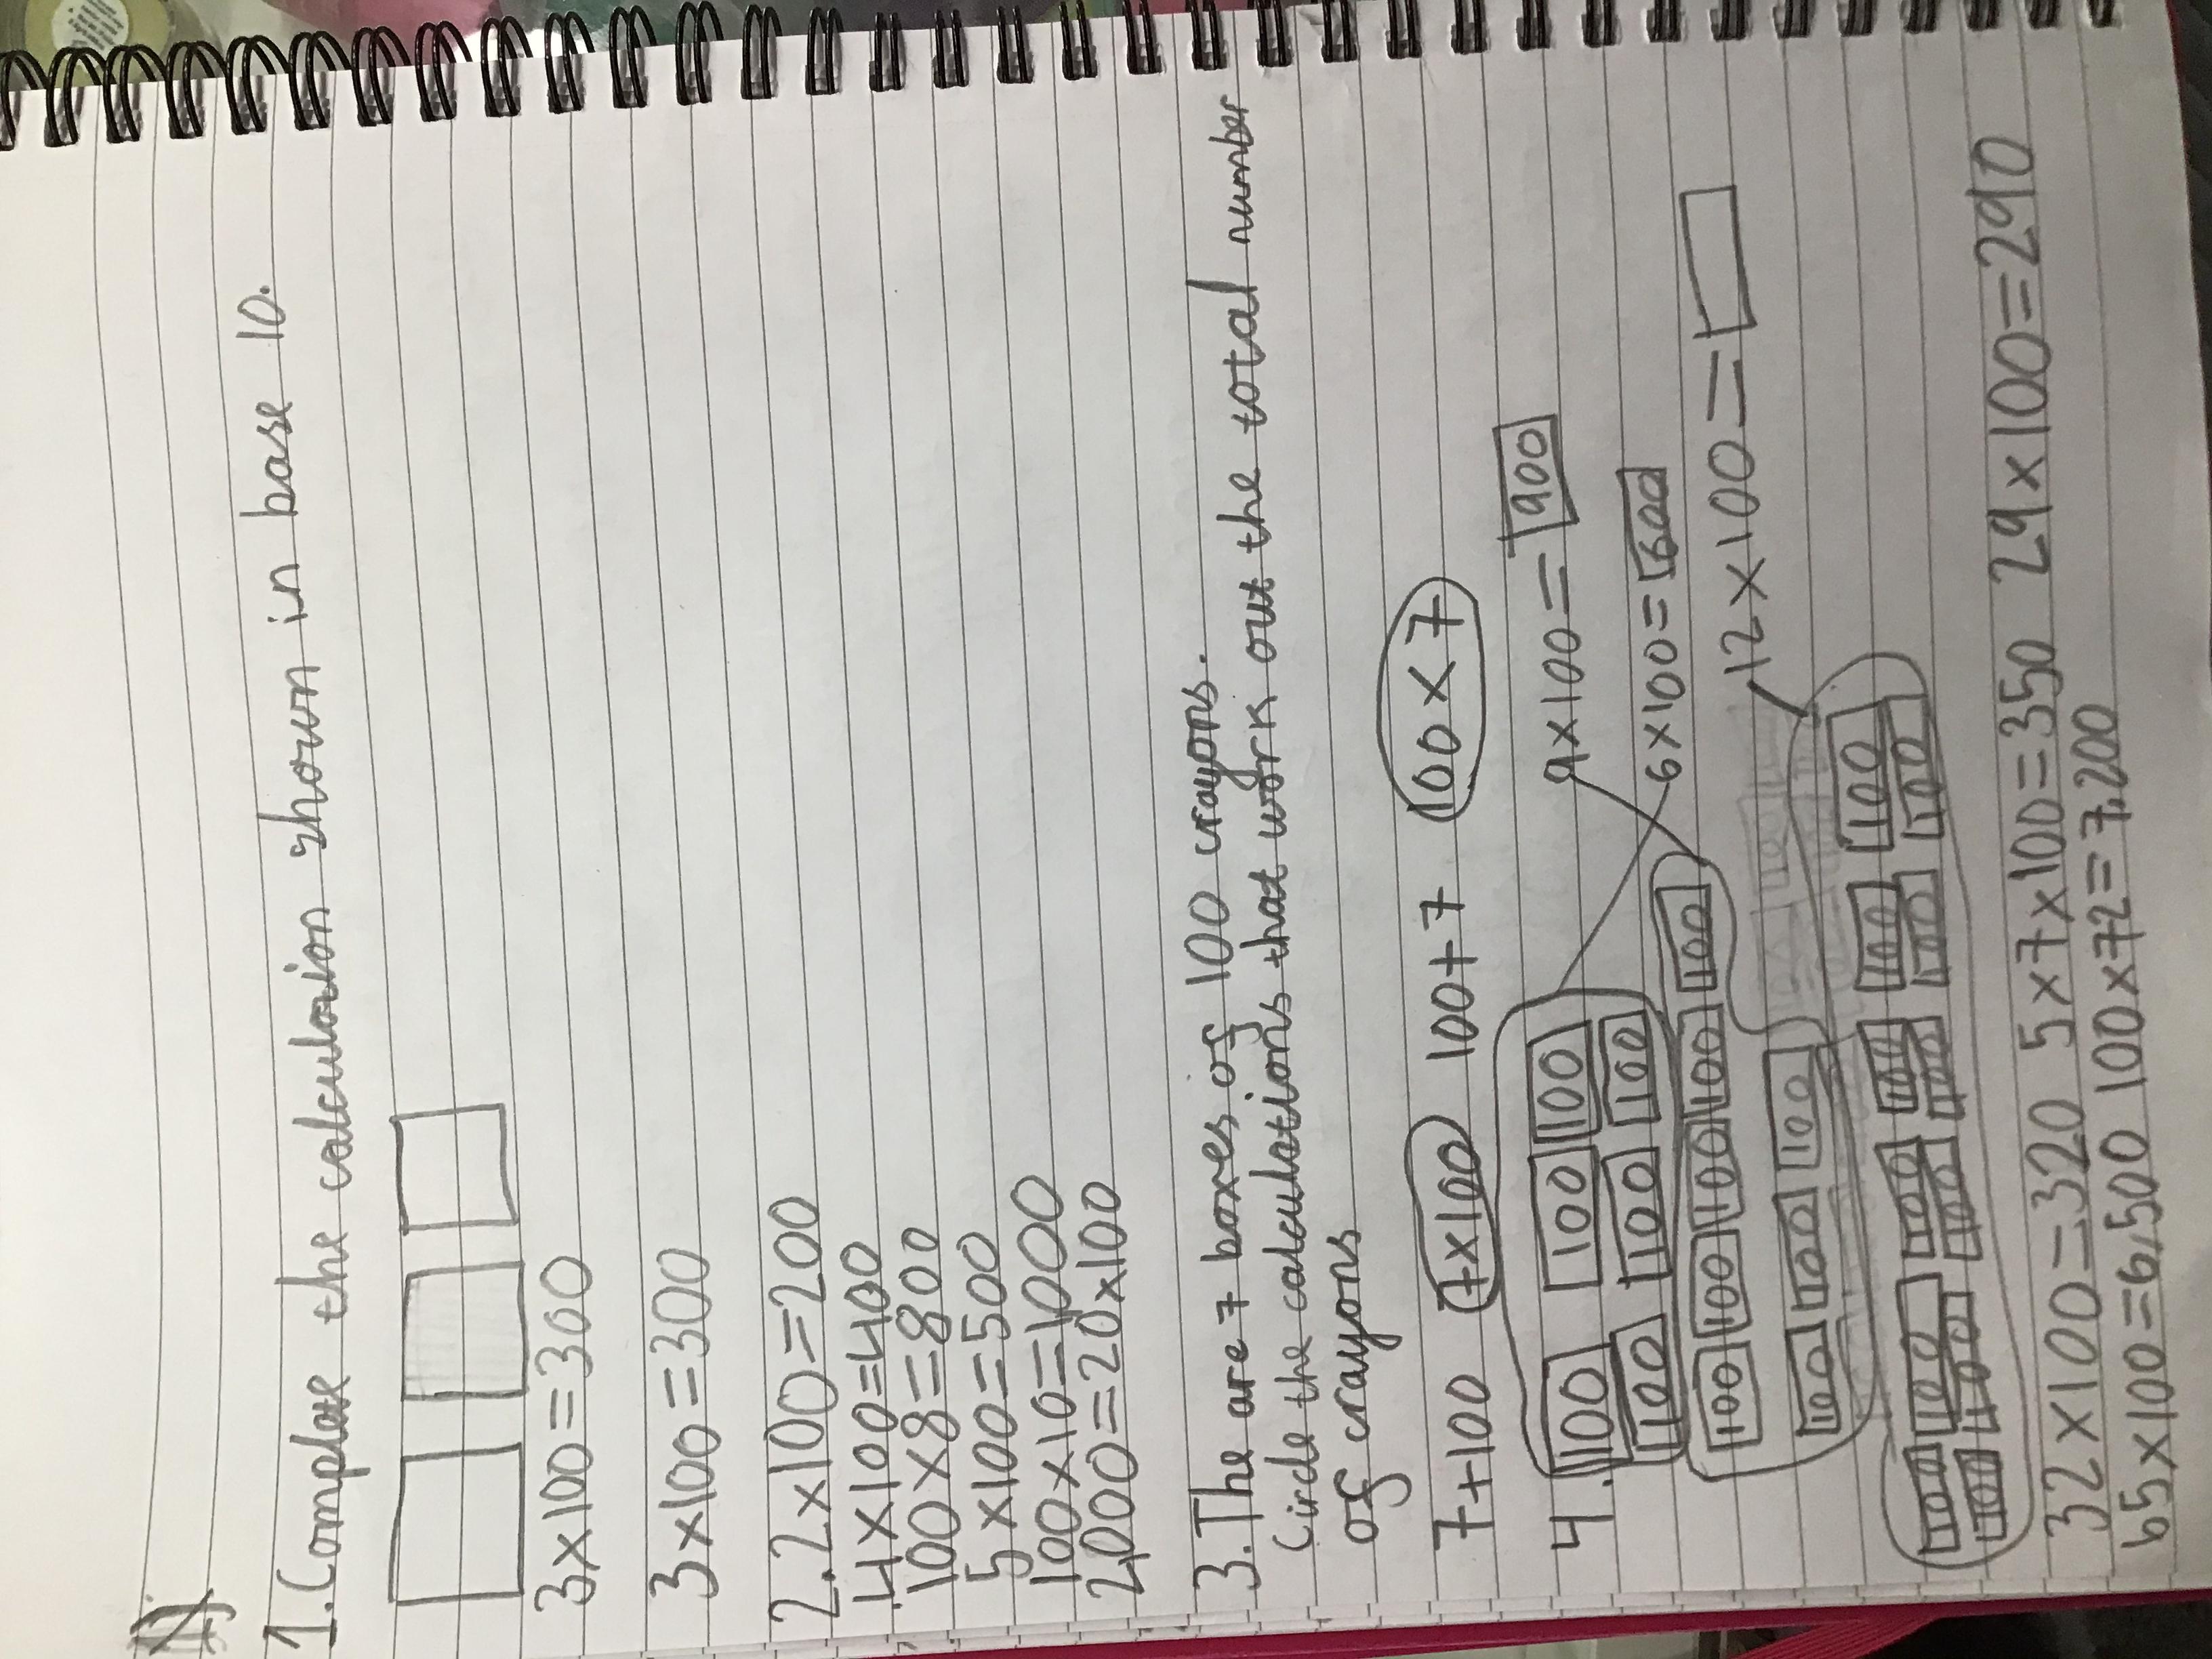 1. Complete the calculation shown in base 10.
3x100=300
3x100=300
2. 2x100=200
4x100=400
100x8=800
5x100=500
100x10=1000
2,000=20x100
3. The are 7 boxes of 100 crayons.
Circle the calculations that work out the total number
of crayons
7+100 7x100 100+7 100x7
4. 100 100 100 9x100=900
100 100 100 6x100=600
100 100 100 100 100 12x100=
100 100 100
100 100 100 100 100 100
100 100 100 100 100 100
32x100=320 5x7x100=350 29x100=290
65x100=6,500 100x72=7,200